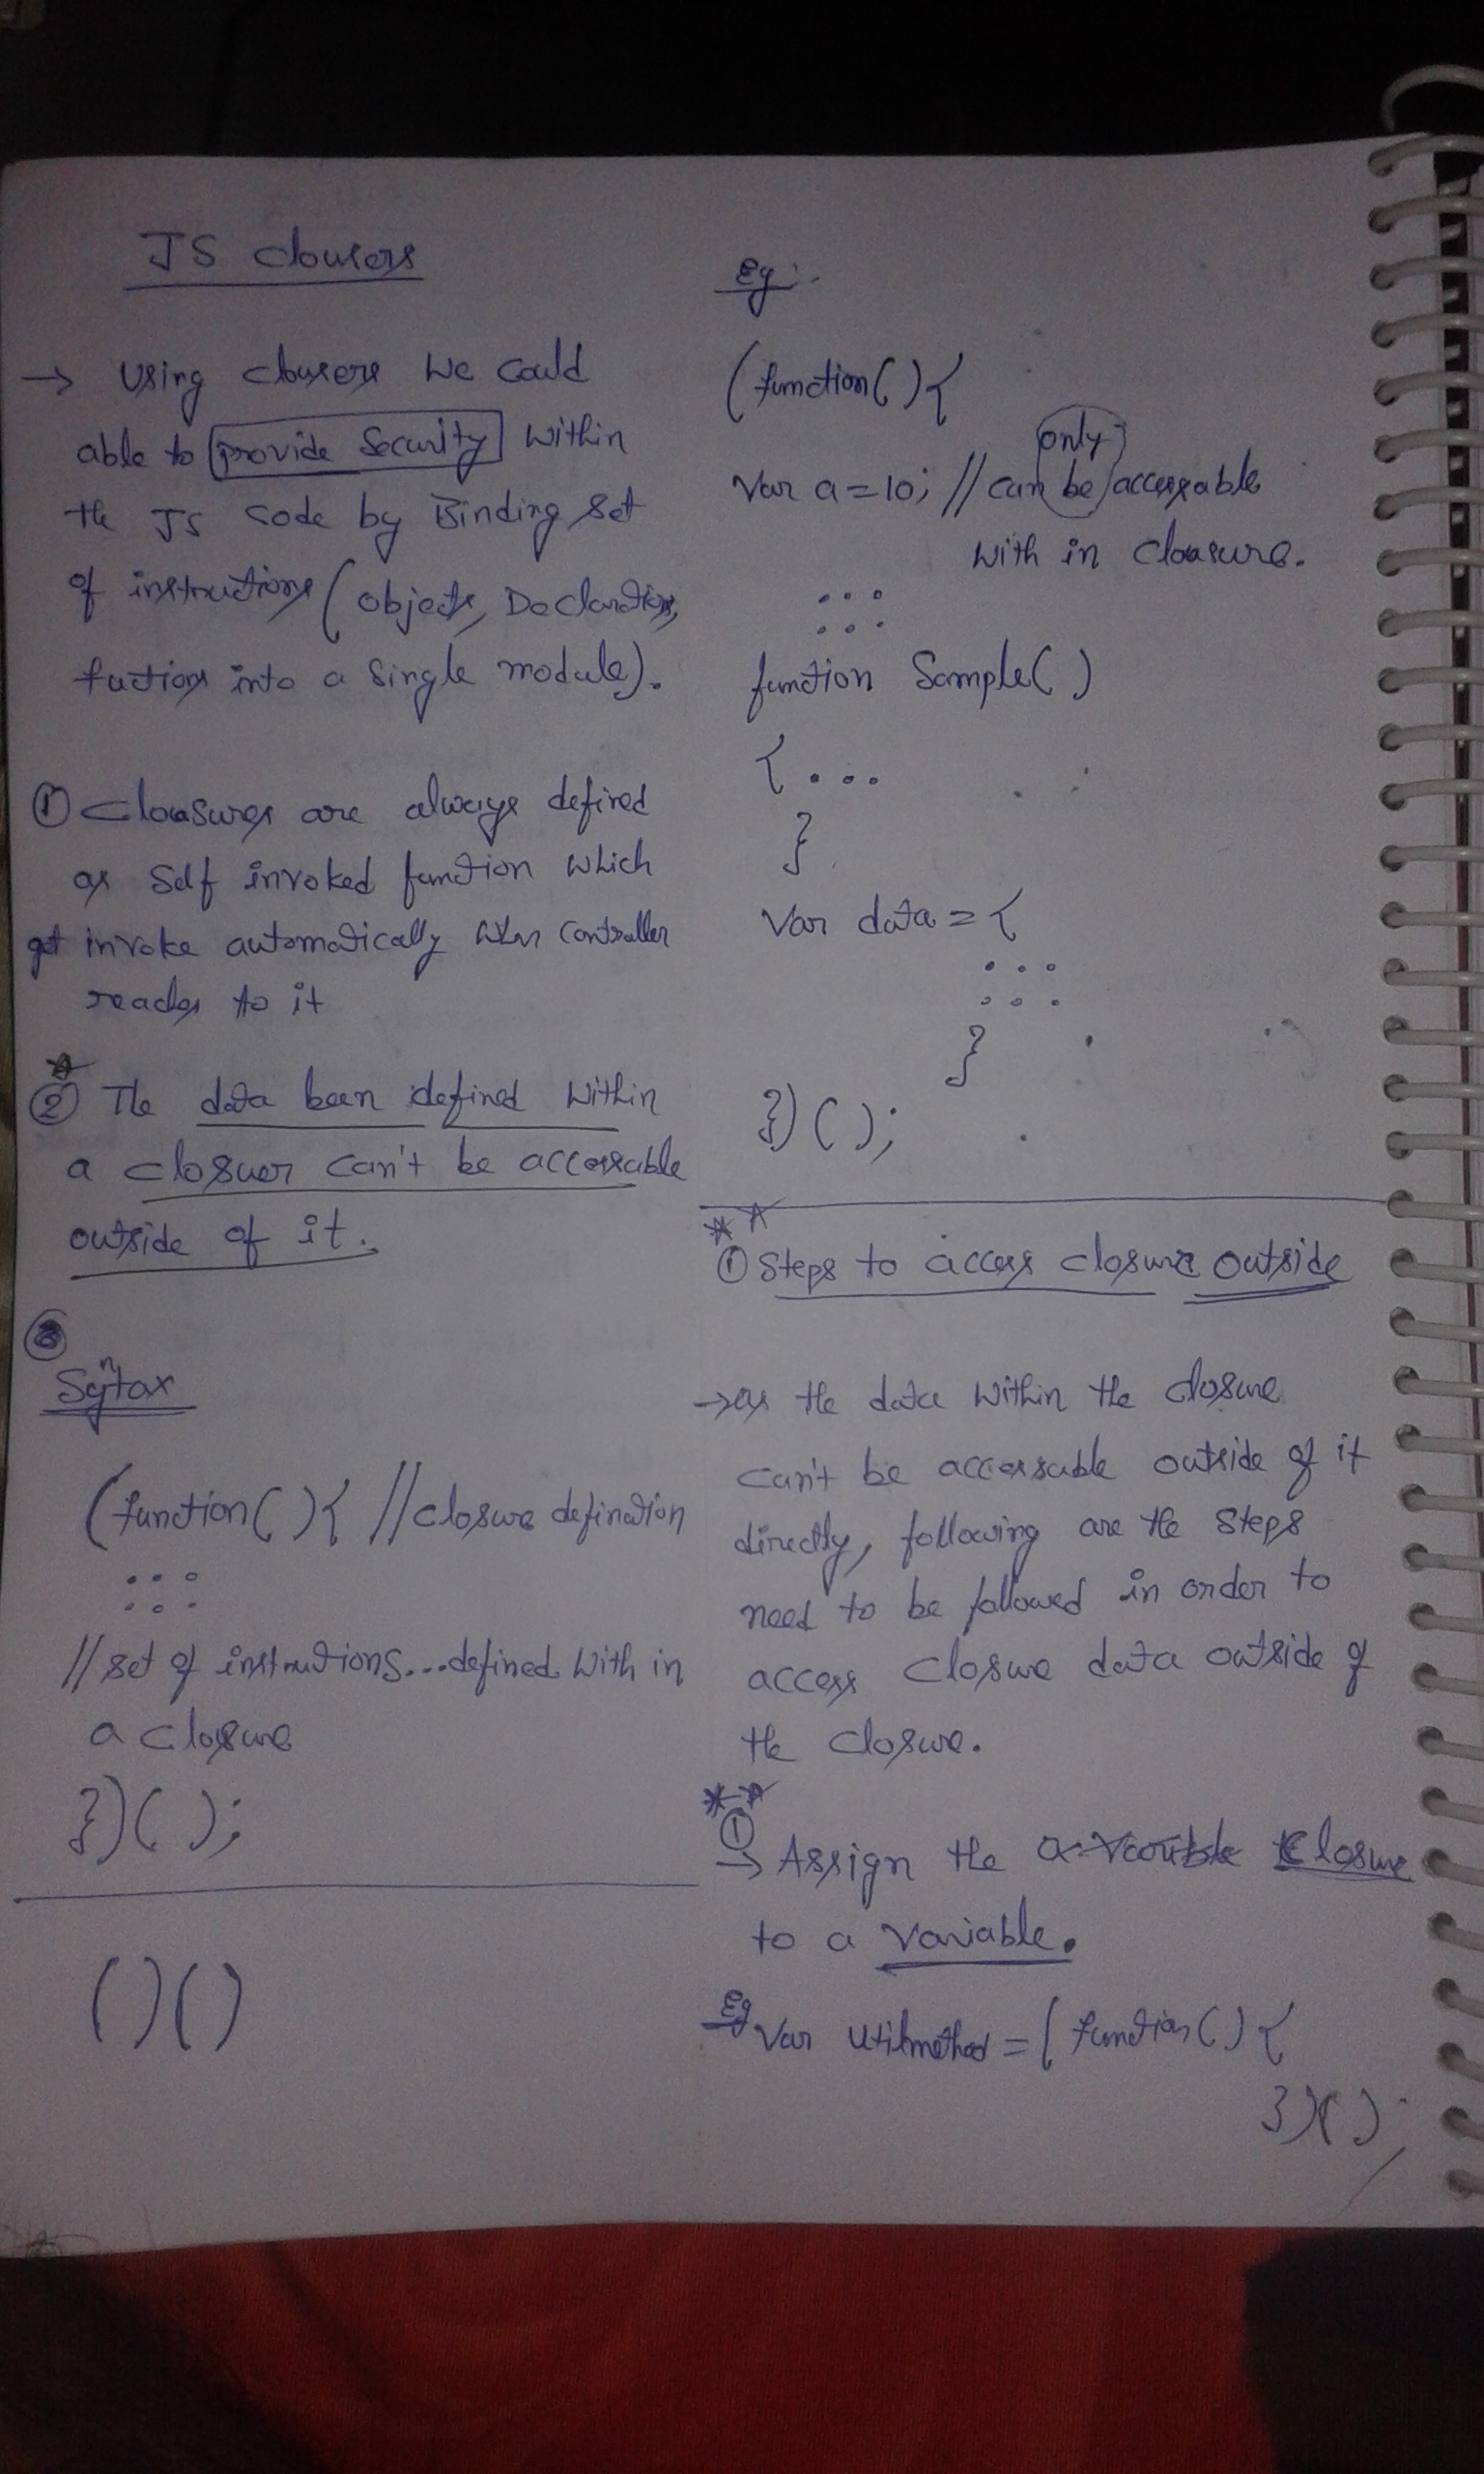 JS clousers
→ Using clousers we could
able to provide security within
the JS code by Binding set
of instructions (objects, Declarations,
fuctions into a single module).
① Cloasures are always defined
as self invoked function which
get invoke automatically when controller
reaches to it
② The data been defined within
a closuer can't be accessable
outside of it.
③
Syntax
(function(){ //closure defination
...
...
//set of instrutions...defined with in
a closure
})();
()()
Eg:-
(function(){
only
var a=10; //can be accessable
with in cloasure.
...
...
function Sample()
{ ...
}
var data = {
...
...
}
})();
① Steps to access closure outside
→ as the data within the closure
can't be accessable outside of it
directly, following are the steps
need to be followed in order to
access closure data outside of
the closure.
①
→ Assign the a variable closure
to a variable.
Eg var utilmethod = (function(){
})();